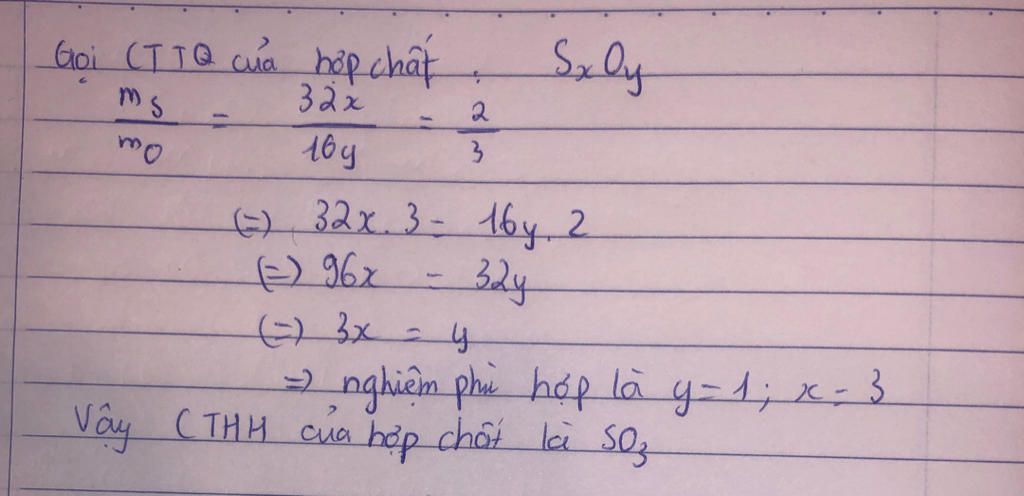 Gọi CTTQ của hợp chất : SxOy
mS/mO = 32x/16y = 2/3
(=) 32x . 3 = 16y . 2
(=) 96x = 32y
(=) 3x = y
=> nghiệm phù hợp là y = 1 ; x = 3
Vậy CTHH của hợp chất là SO3